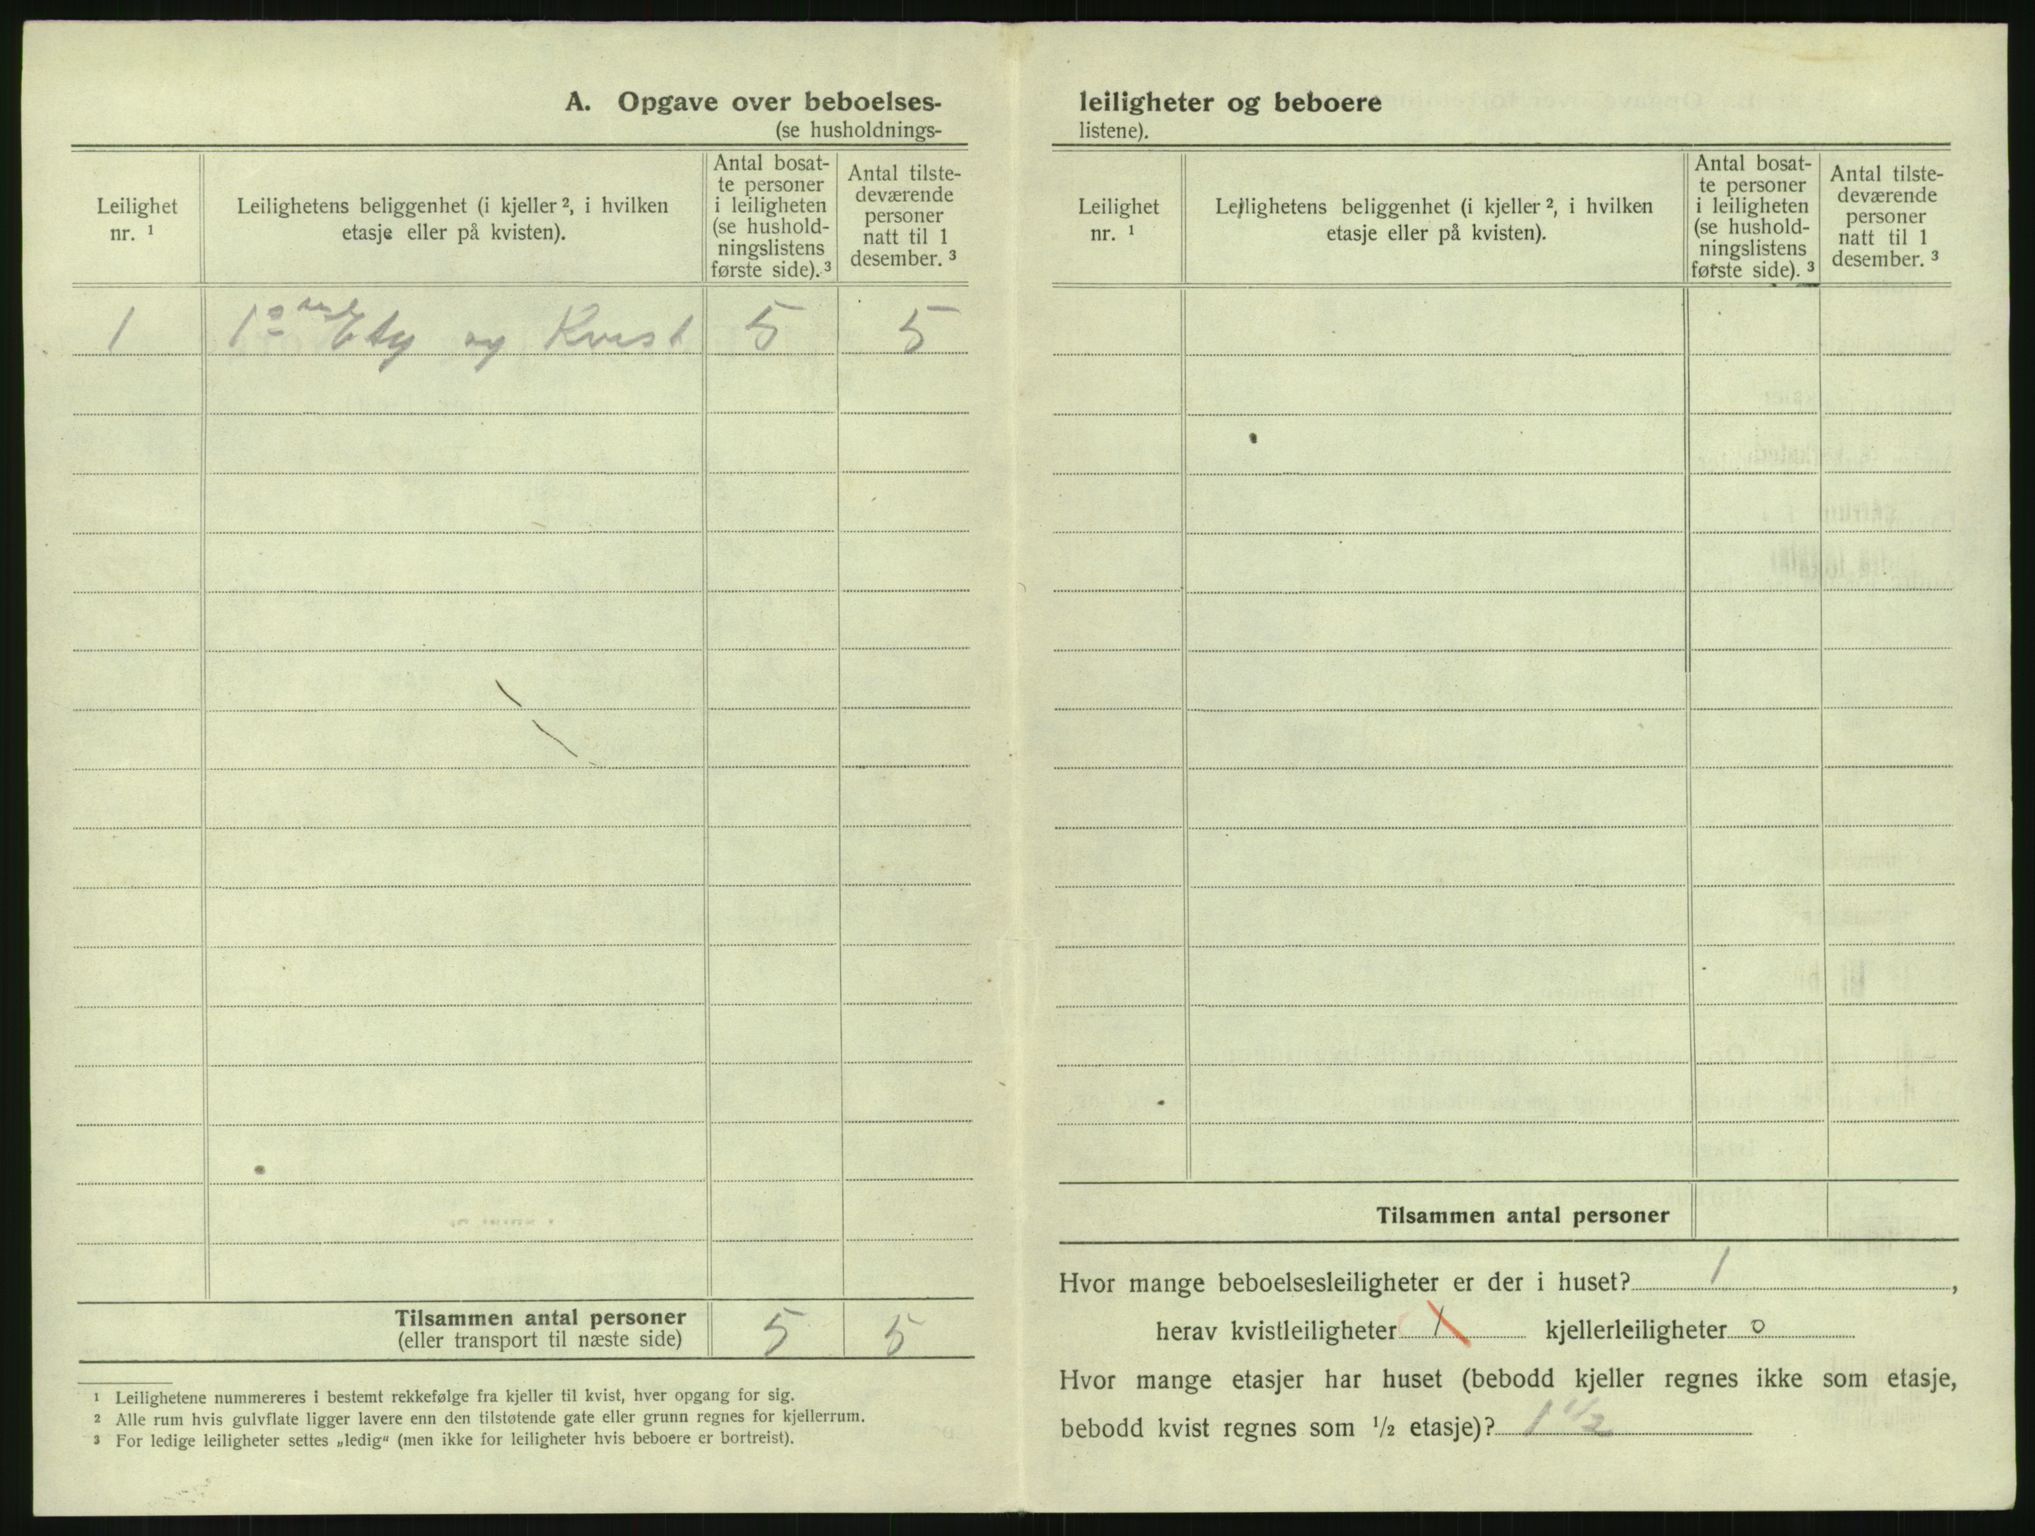 A. Opgave over beboelses-
(se husholdnings-
Leilighet
nr. 1
Leilighetens beliggenhet (i kjeller 2, i hvilken
etasje eller på kvisten).
Antal bosat-
te personer
i leiligheten
(se hushold-
ningslistens
første side). 3
Antal tilste-
deværende
personer
natt til 1
desember. 3
1 1ste Etg og Kvist 5 5
Tilsammen antal personer 5 5
(eller transport til næste side)
1 Leilighetene nummereres i bestemt rekkefølge fra kjeller til kvist, hver opgang for sig.
2 Alle rum hvis gulvflate ligger lavere enn den tilstøtende gate eller grunn regnes for kjellerrum.
3 For ledige leiligheter settes „ledig“ (men ikke for leiligheter hvis beboere er bortreist).
leiligheter og beboere
listene).
Leilighet
nr. 1
Leilighetens beliggenhet (i kjeller 2, i hvilken
etasje eller på kvisten).
Antal bosat-
te personer
i leiligheten
(se hushold-
ningslistens
første side). 3
Antal tilste-
deværende
personer
natt til 1
desember. 3
Tilsammen antal personer
Hvor mange beboelsesleiligheter er der i huset? 1,
herav kvistleiligheter 1 kjellerleiligheter 0
Hvor mange etasjer har huset (bebodd kjeller regnes ikke som etasje,
bebodd kvist regnes som 1/2 etasje)? 1 1/2